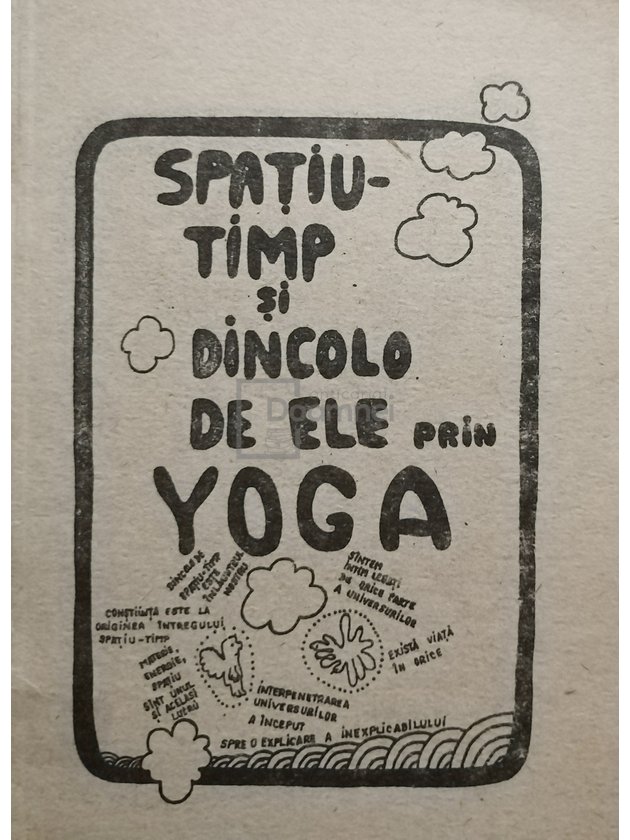 SPAȚIU-
TIMP
și
DINCOLO
DE ELE PRIN
YOGA
DINCOLO DE
SPAȚIU-TIMP
ESTE
ÎNLĂUNTRUL
NOSTRU
SÎNTEM
INTIM LEGAȚI
DE ORICE PARTE
A UNIVERSURILOR
CONȘTIINȚA ESTE LA
ORIGINEA ÎNTREGULUI
SPAȚIU-TIMP
MATERIE,
ENERGIE,
SPAȚIU
SÎNT UNUL
ȘI ACELAȘI
LUCRU
EXISTĂ VIAȚĂ
ÎN ORICE
INTERPENETRAREA
UNIVERSURILOR
A ÎNCEPUT
SPRE O EXPLICARE A INEXPLICABILULUI
Doamnei